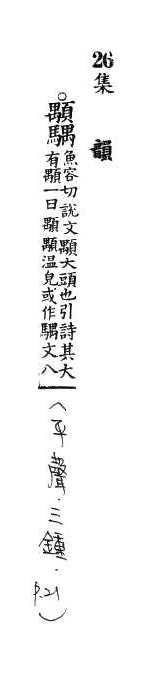 26集 韻
○顒
魚容切說文顒大頭也引詩其大
有顒一曰顒顒温皃或作文八
(平聲.三鍾.P.21)